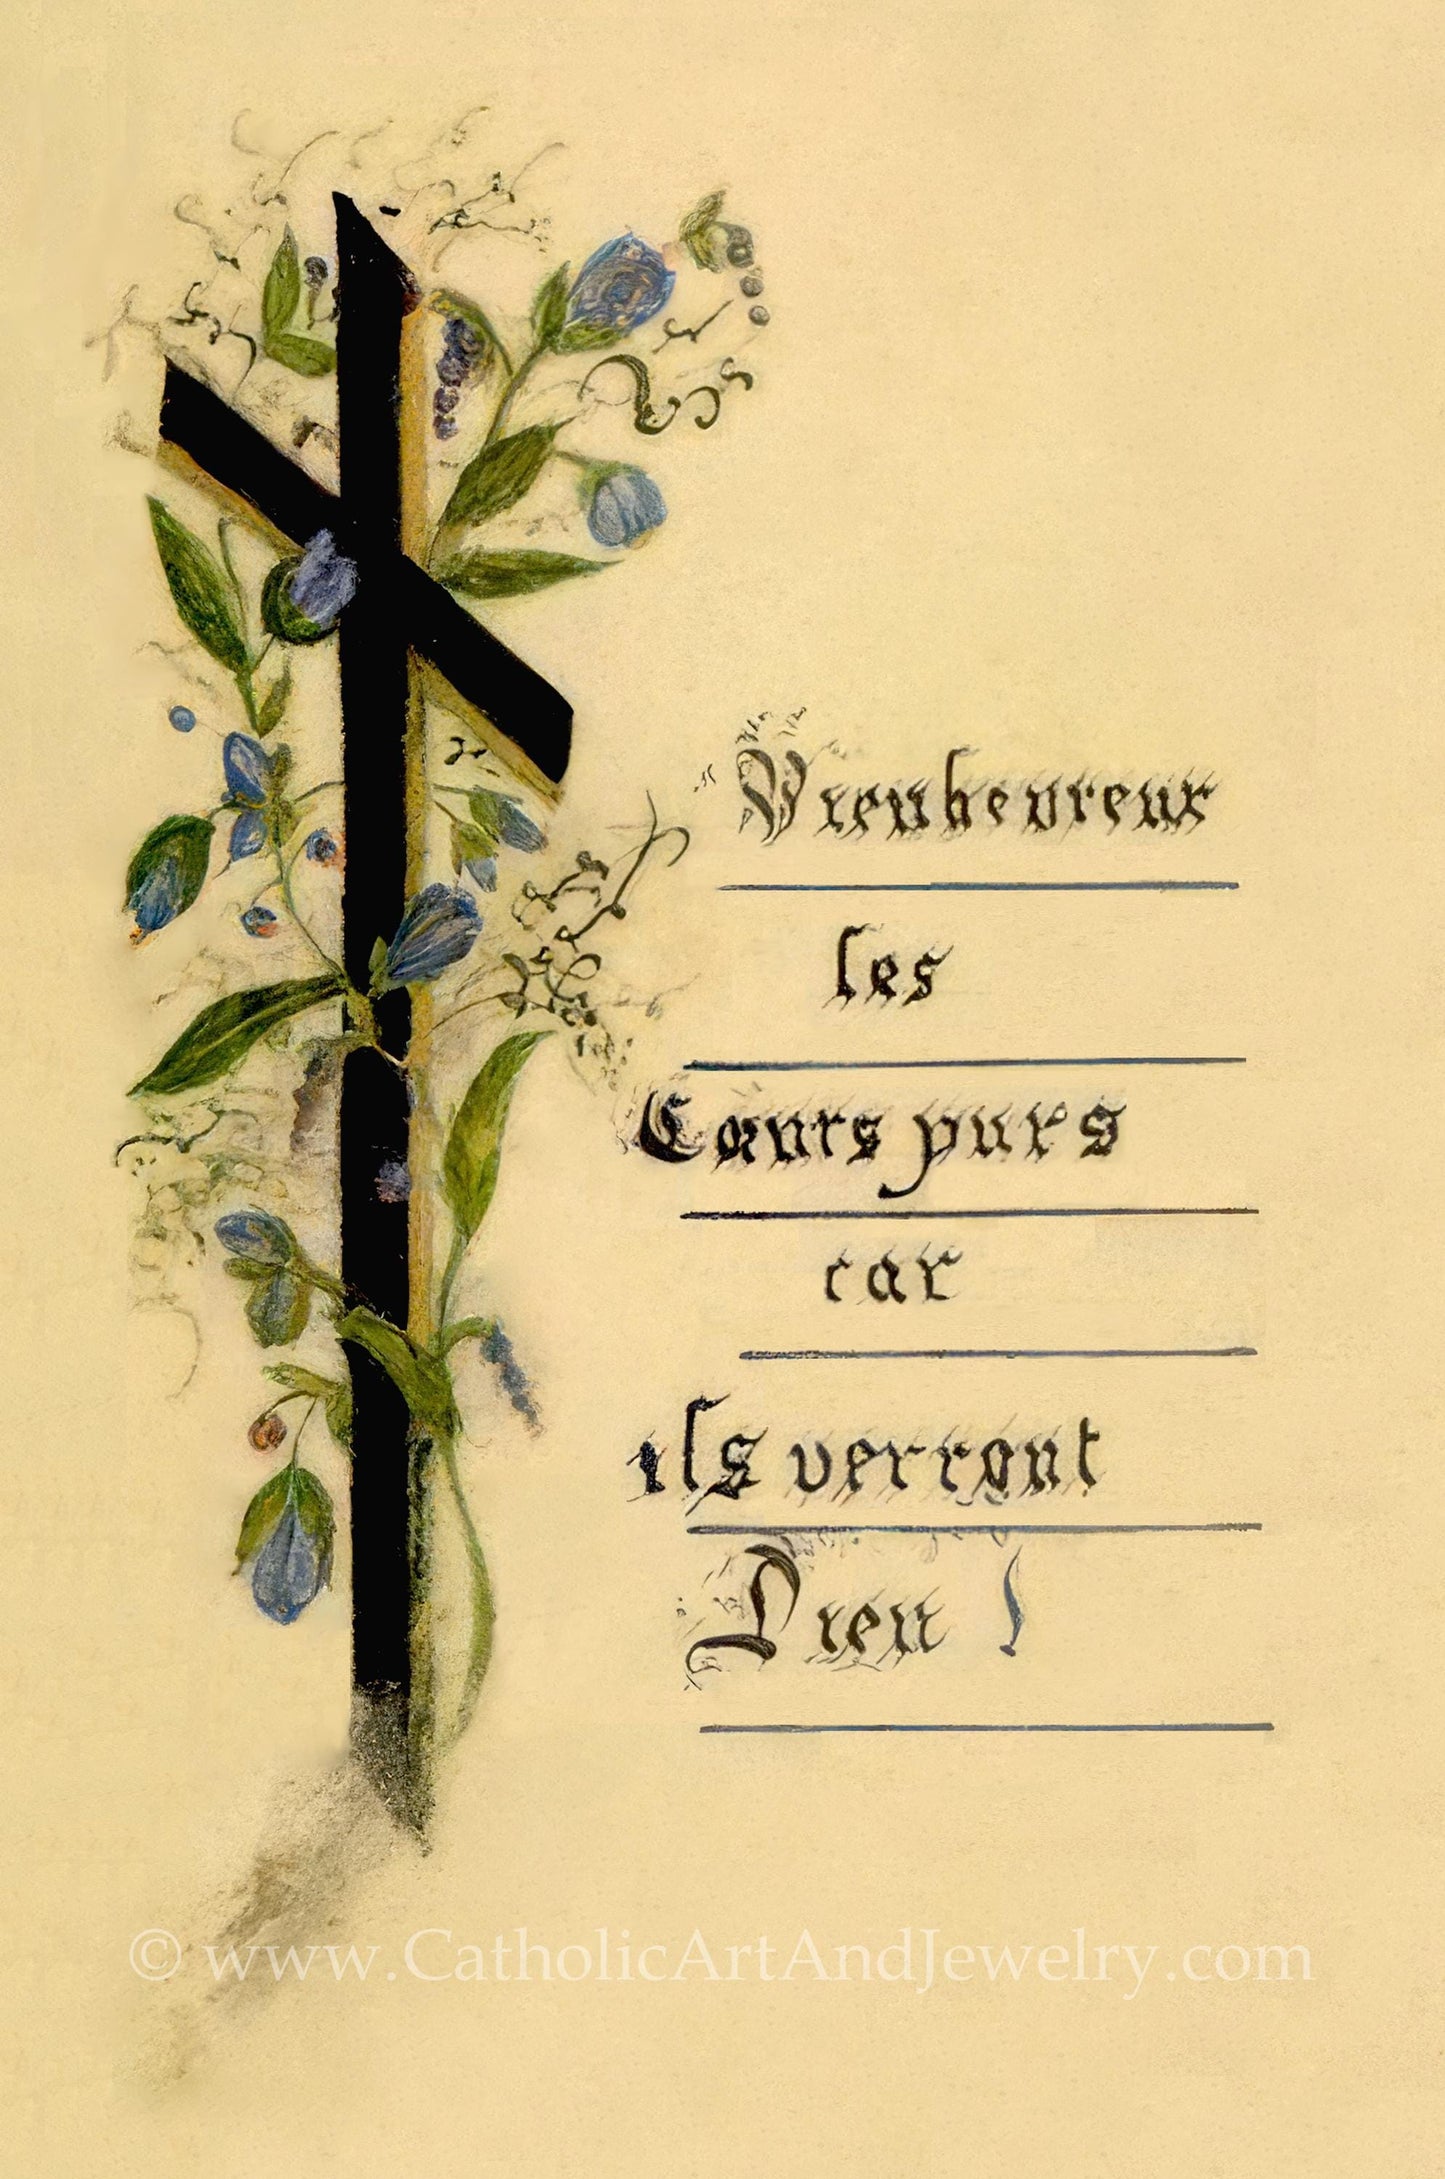 Bienheureux
les
Cœurs purs
car
ils verront
Dieu !
© www.CatholicArtAndJewelry.com